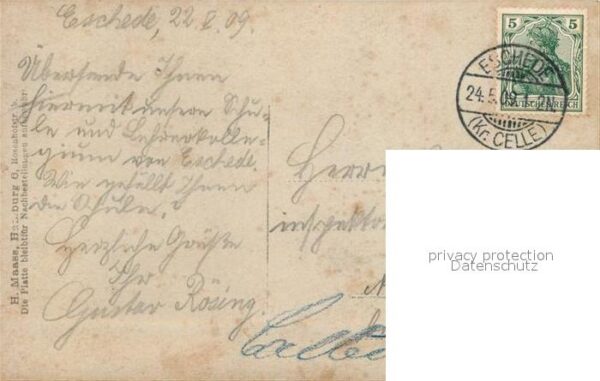 Eschede, 22 V. 09.
Übersende Ihnen
hiermit unsere Schu-
le und Lehrerkolle-
gium von Eschede.
Wie gefällt Ihnen
die Schule.?
Herzliche Grüße
Ihr
Gustav Rösing.
H. Maass, Hamburg 6, Rosenhofstr.
Die Platte bleibt für Nachbestellungen aufbewahrt
5 5
DEUTSCHES REICH
ESCHEDE
24.5.09
(Kr. CELLE)
Herrn
inspektor
privacy protection
Datenschutz